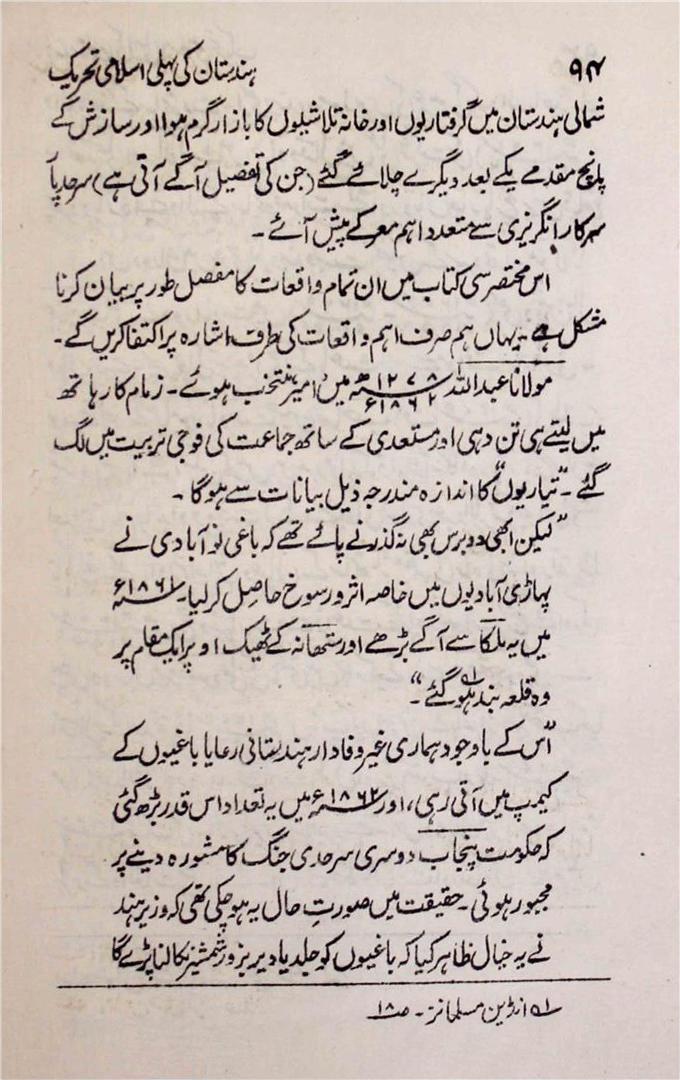 ۹۴ ہندستان کی پہلی اسلامی تحریک
شمالی ہندستان میں گرفتاریوں اور خانہ تلاشیوں کا بازار گرم ہوا اور سازش کے
پانچ مقدمے یکے بعد دیگرے چلائے گئے (جن کی تفصیل آگے آتی ہے) سرحد پر
سرکار انگریزی سے متعدد اہم معرکے پیش آئے۔
اس مختصر سی کتاب میں ان تمام واقعات کا مفصل طور پر بیان کرنا
مشکل ہے۔ یہاں ہم صرف اہم واقعات کی طرف اشارہ پر اکتفا کریں گے۔
مولانا عبداللہ ۱۲۷۸ھ ۱۸۶۲ء میں امیر منتخب ہوئے۔ زمام کار ہاتھ
میں لیتے ہی تن دہی اور مستعدی کے ساتھ جماعت کی فوجی تربیت میں لگ
گئے۔ "تیاریوں" کا اندازہ مندرجہ ذیل بیانات سے ہوگا۔
"لیکن ابھی دو برس بھی نہ گذرنے پائے تھے کہ باغی نو آبادی نے
پہاڑی آبادیوں میں خاصہ اثر و رسوخ حاصل کر لیا۔ ۱۸۶۱ء
میں یہ ملکا سے آگے بڑھے اور ستھانہ کے ٹھیک اوپر ایک مقام پر
وہ قلعہ بند ہو گئے۱؎"۔
"اس کے باوجود ہماری غیر وفادار ہندستانی رعایا باغیوں کے
کیمپ میں آتی رہی، اور ۱۸۶۲ء میں یہ تعداد اس قدر بڑھ گئی
کہ حکومت پنجاب دوسری سرحدی جنگ کا مشورہ دینے پر
مجبور ہوئی۔ حقیقت میں صورتِ حال یہ ہو چکی تھی کہ وزیر ہند
نے یہ خیال ظاہر کیا کہ باغیوں کو جلد یا دیر بزور شمشیر نکالنا پڑے گا
۱؎ ارڈین مسلمانز۔ ص۱۸